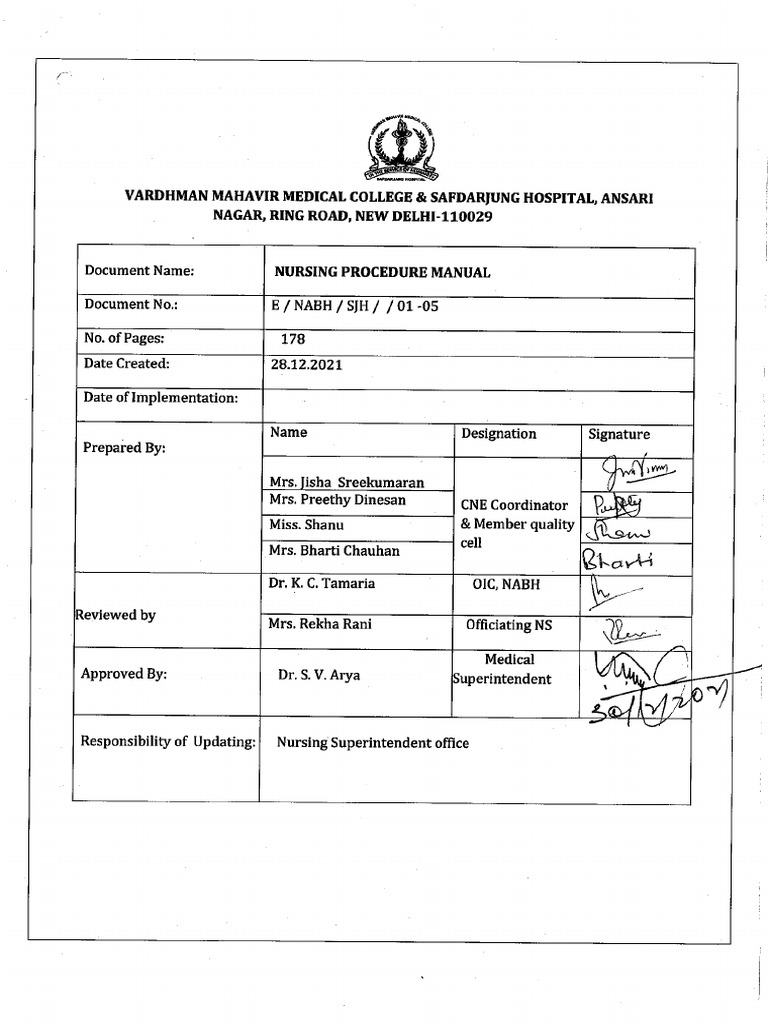 VARDHMAN MAHAVIR MEDICAL COLLEGE
IN THE SERVICE OF HUMANITY
SAFDARJUNG HOSPITAL
VARDHMAN MAHAVIR MEDICAL COLLEGE & SAFDARJUNG HOSPITAL, ANSARI
NAGAR, RING ROAD, NEW DELHI-110029
Document Name: NURSING PROCEDURE MANUAL
Document No.: E / NABH / SJH / / 01 -05
No. of Pages: 178
Date Created: 28.12.2021
Date of Implementation:
Prepared By:
Name Designation Signature
Mrs. Jisha Sreekumaran
Mrs. Preethy Dinesan
Miss. Shanu
Mrs. Bharti Chauhan
CNE Coordinator
& Member quality
cell
Bharti
Reviewed by
Dr. K. C. Tamaria OIC, NABH
Mrs. Rekha Rani Officiating NS
Approved By: Dr. S. V. Arya Medical
Superintendent
Responsibility of Updating: Nursing Superintendent office